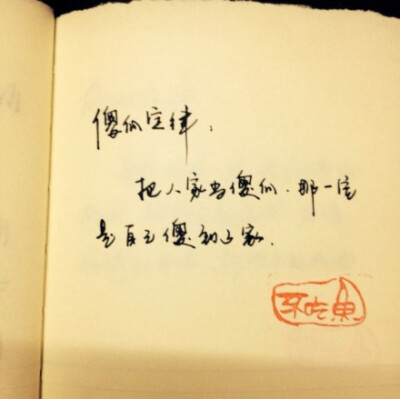 傻瓜定律:
把人家当傻瓜.那一定
是自己傻到了家.
不吃鱼